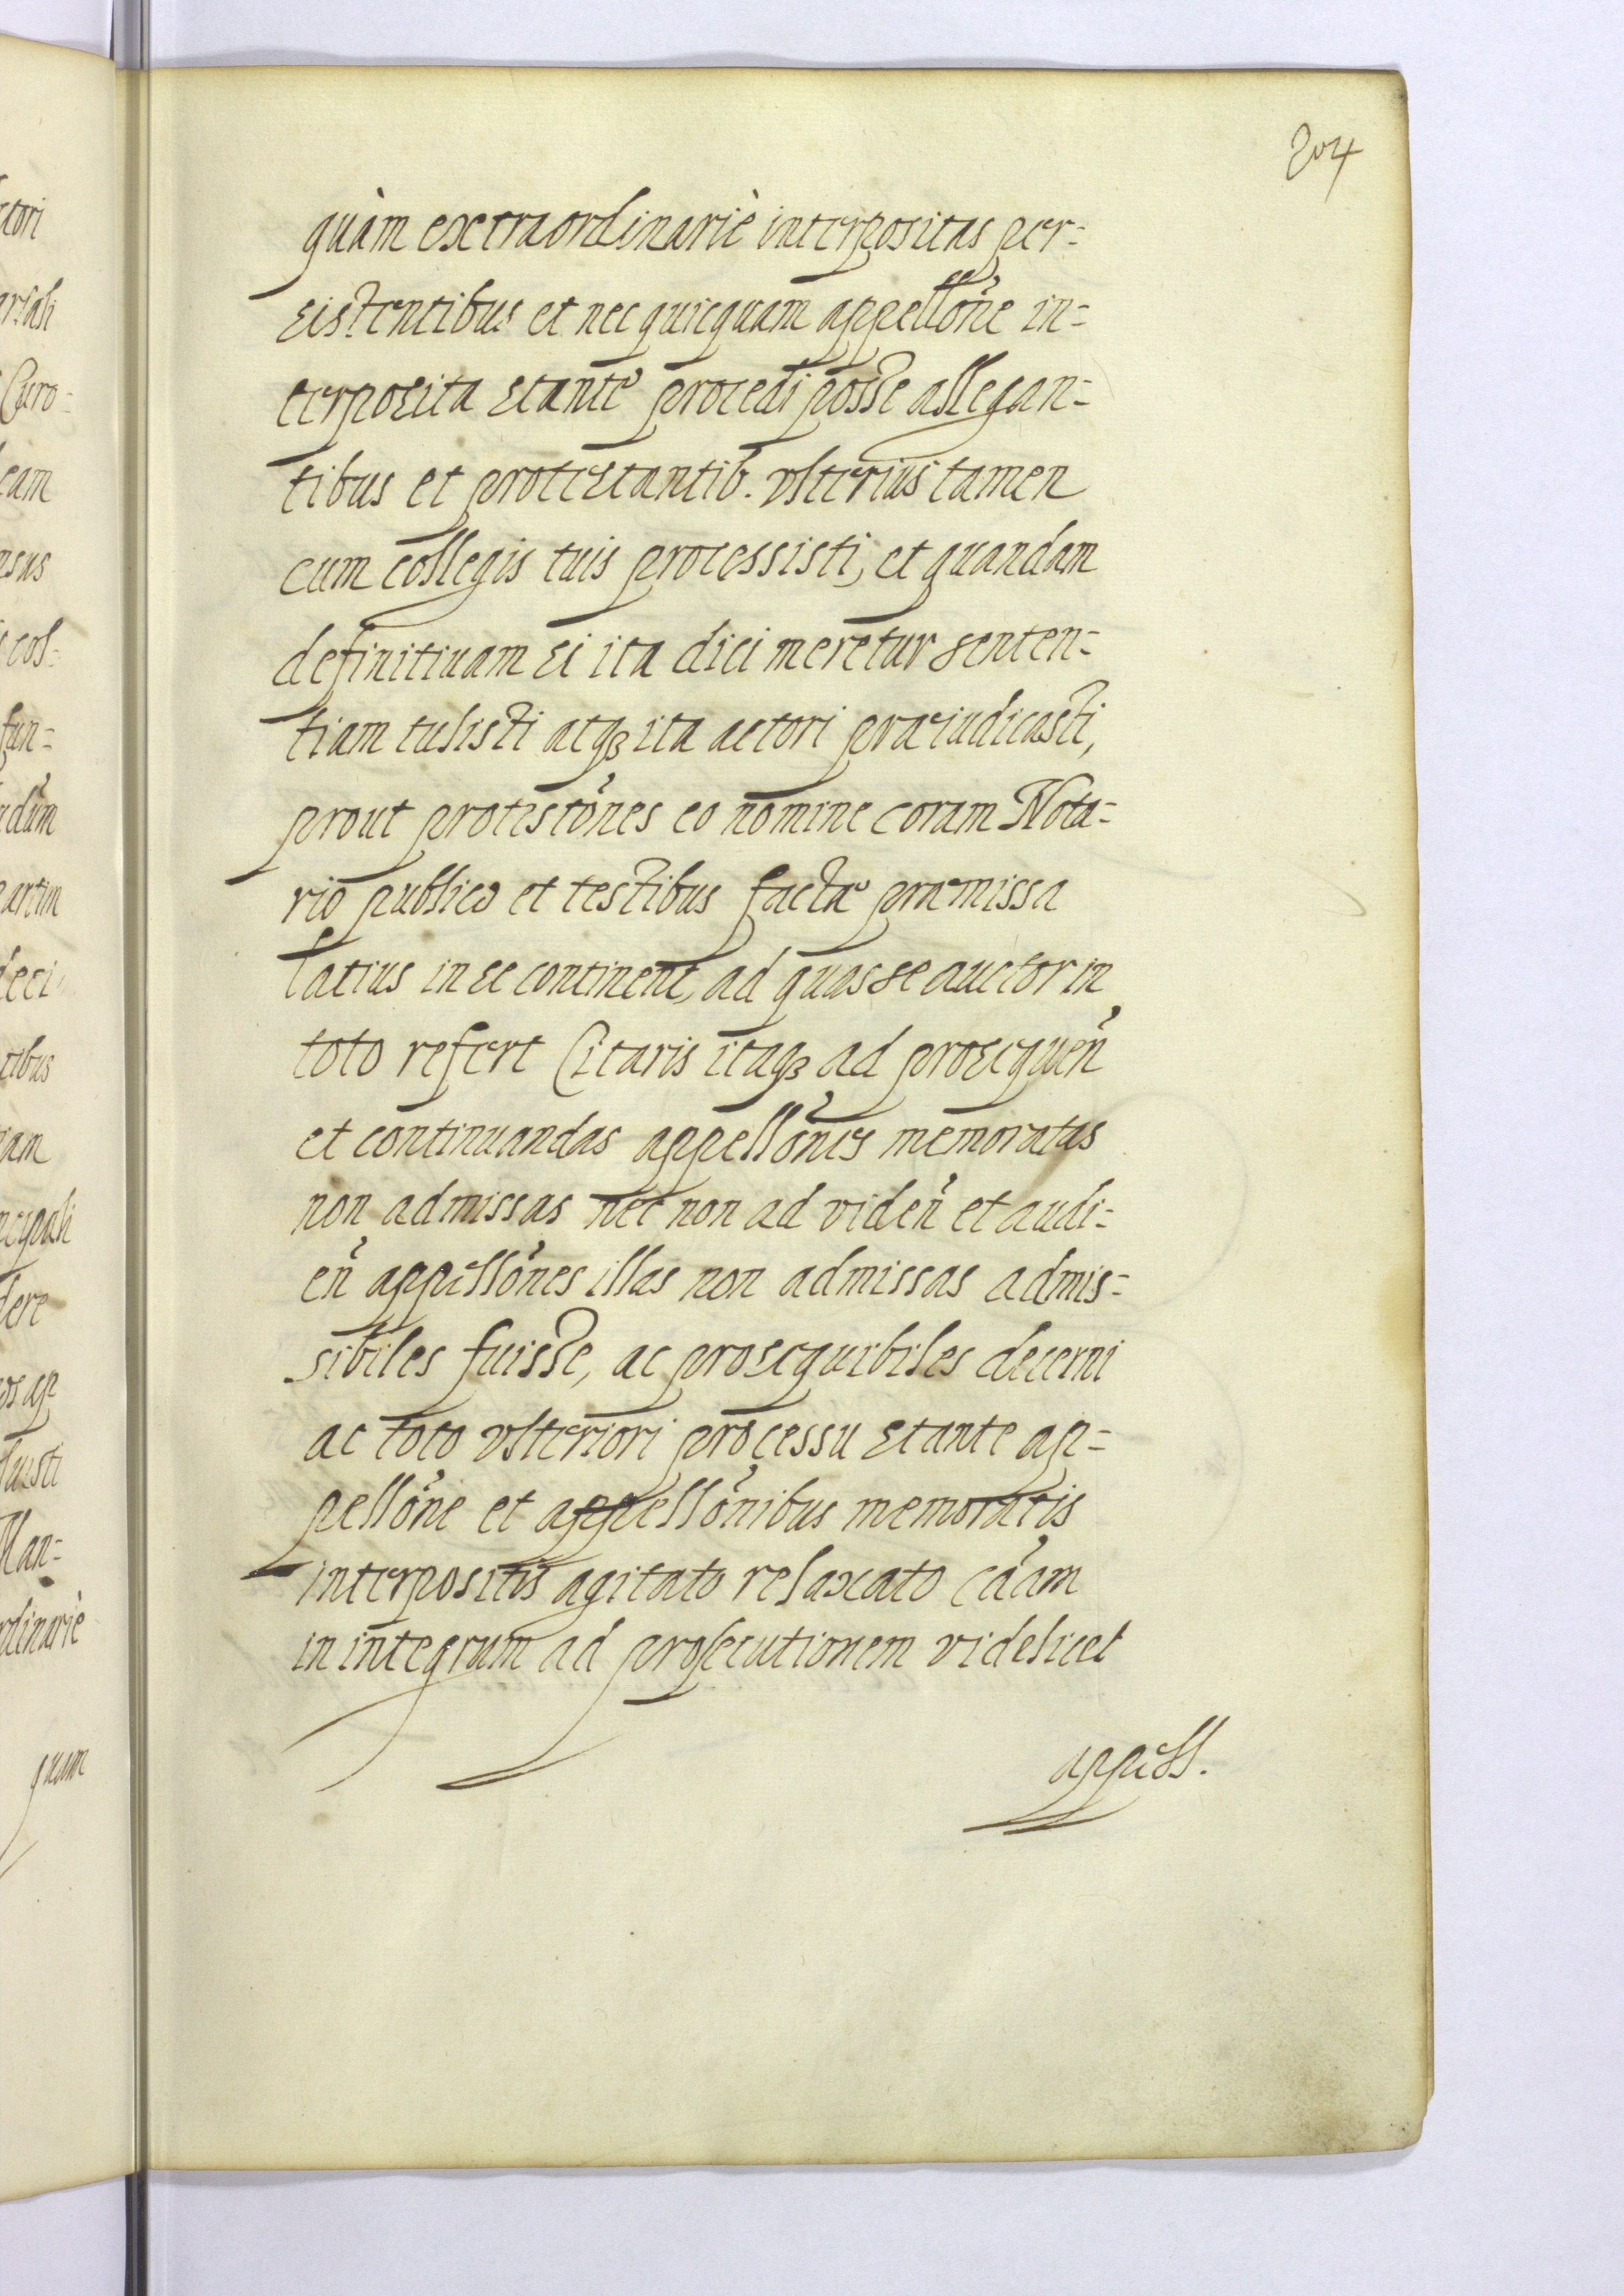 204
quàm extraordinariè interpositas per=
sistentibus et nec quicquam appellõne in=
terposita stante procedi posse allegan=
tibus et protestantib. vlterius tamen
cum collegis tuis processisti, et quandam
definitiuam si ita dici meretur senten=
tiam tulisti atqꝫ ita actori præiudicasti,
prout protestõnes eo nomine coram Nota=
rio publico et testibus factæ præmissa
latius in se continent, ad quas se auctor in
toto refert Citaris itaqꝫ ad prosequeñ
et continuandas appellõnes memoratas
non admissas nec non ad videñ et audi=
eñ appellõnes illas non admissas admis=
sibiles fuisse, ac prosequibiles decerni
ac toto vlteriori processu stante ap=
pellõne et appellõnibus memoratis
interpositis agitato relaxato cãam
in integrum ad prosecutionem videlicet
appell.